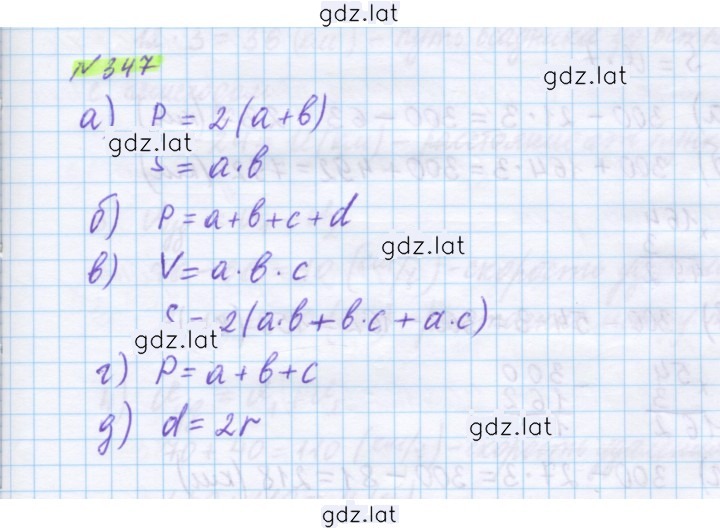 gdz.lat
№ 347
gdz.lat
а) P = 2(a+b)
gdz.lat
S = a·b
б) P = a+b+c+d
gdz.lat
в) V = a·b·c
S = 2(a·b+b·c+a·c)
gdz.lat
г) P = a+b+c
д) d = 2r
gdz.lat
gdz.lat